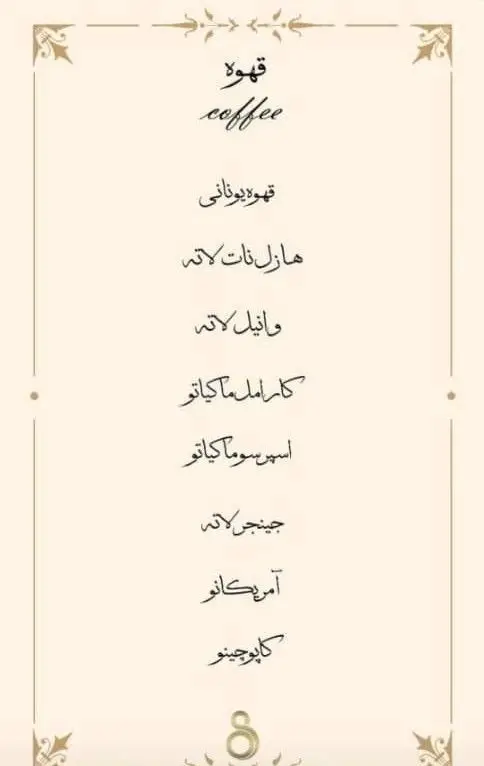 قهوه
coffee
قهوه یونانی
هازل نات لاته
وانیل لاته
کارامل ماکیاتو
اسپرسو ماکیاتو
جینجر لاته
آمریکانو
کاپوچینو
8